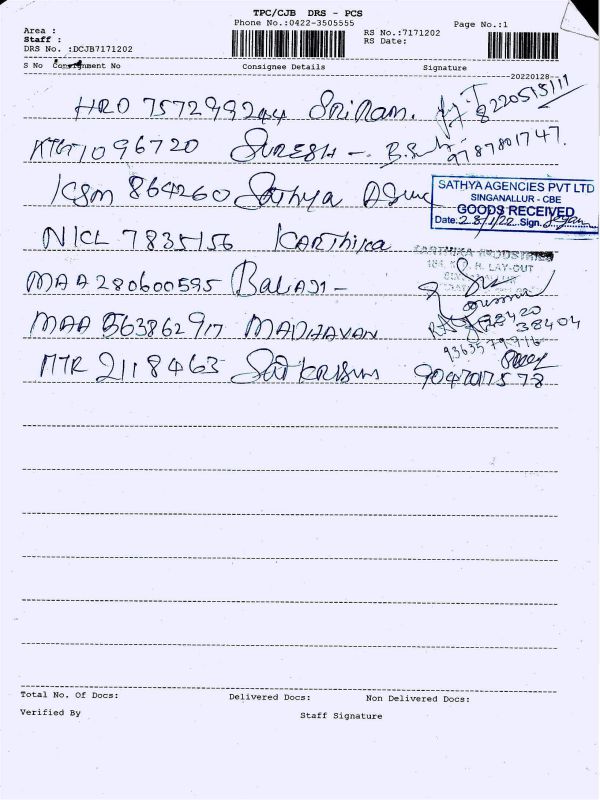 TPC/CJB DRS - PCS
Phone No.:0422-3505555 Page No.:1
Area :
Staff : RS No.:7171202
DRS No. :DCJB7171202 RS Date:
S No Consignment No Consignee Details Signature
20220128
HRO 757299244 SRiRam. 8220515111
KTGT1096720 SURESH - 9787801747.
KSM 864260 Sathya
SATHYA AGENCIES PVT LTD
SINGANALLUR - CBE
GOODS RECEIVED
Date: 28/1/22 Sign.
NICL 7835156 KARThika
KARTHIKA INDUSTRIES
LAY-OUT
MAA 280600595 BALAJI -
MAA 563862917 MADHAVAN
38404
MTR 2118463 9047017578
Total No. Of Docs: Delivered Docs: Non Delivered Docs:
Verified By Staff Signature